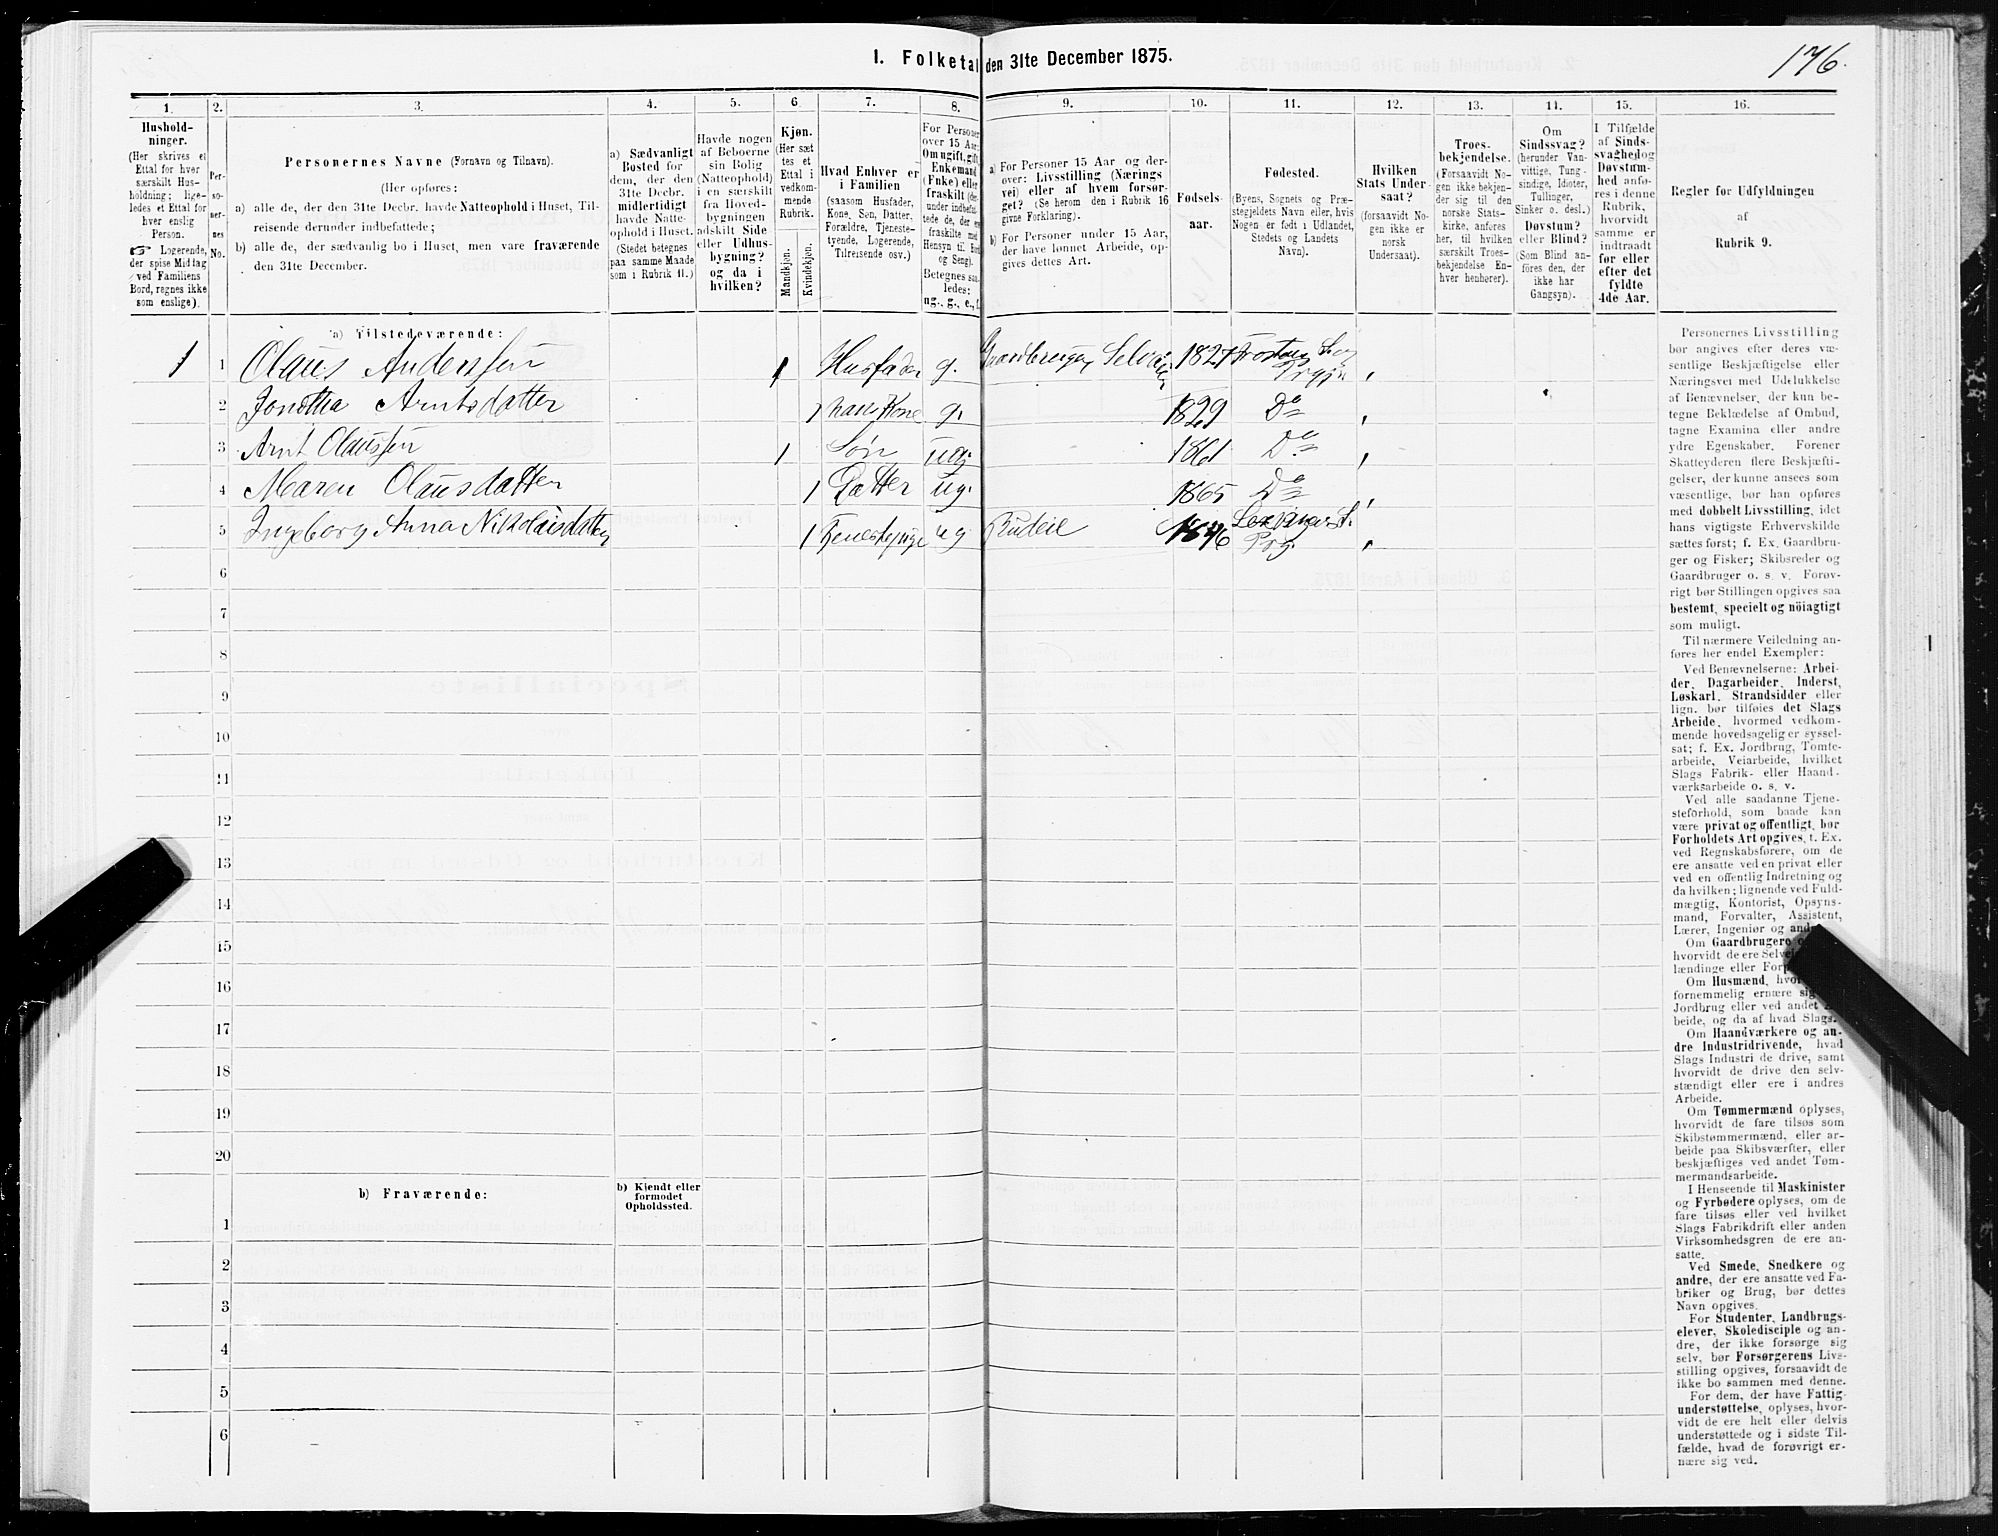 I. Folketal den 31te December 1875.
176.
1.
2.
3.
4.
5.
6.
7.
8.
9.
10.
11.
12.
13.
14.
15.
16.
Hushold-
ninger.
(Her skrives et
Ettal for hver
særskilt Hus-
holdning; lige-
ledes et Ettal for
hver enslig
Person.
☞ Logerende,
der spise Middag
ved Familiens
Bord, regnes ikke
som enslige).
Per-
so-
ner-
nes
No.
Personernes Navne (Fornavn og Tilnavn).
(Her opføres:
a) alle de, der den 31te Decbr. havde Natteophold i Huset, Til-
reisende derunder indbefattede;
b) alle de, der sædvanlig bo i Huset, men vare fraværende
den 31te December.
a) Sædvanligt
Bosted for
dem, der den
31te Decbr.
midlertidigt
havde Natte-
ophold i Huset.
(Stedet betegnes
paa samme Maade
som i Rubrik 11.)
Havde nogen
af Beboerne
sin Bolig
(Natteophold)
i en særskilt
fra Hoved-
bygningen
adskilt Side
eller Udhus-
bygning?
og da i
hvilken?
Kjøn.
(Her sæt-
tes et
Ettal i
vedkom-
mende
Rubrik.
Mandkjøn.
Kvindekjøn.
Hvad Enhver er
i Familien
(saasom Husfader,
Kone, Søn, Datter,
Forældre, Tjeneste-
tyende, Logerende,
Tilreisende osv.)
For Personer
over 15 Aar:
Om ugift, gift,
Enkemand
(Enke) eller
fraskilt (der-
under indbefat-
tede de, der ere
fraskilte med
Hensyn til Bord
og Seng).
Betegnes saa-
ledes:
ug., g., e., f.
a) For Personer 15 Aar og der-
over: Livsstilling (Nærings-
vei) eller af hvem forsør-
get? (Se herom den i Rubrik 16
givne Forklaring).
b) For Personer under 15 Aar,
der have lønnet Arbeide, op-
gives dettes Art.
Fødsels-
aar.
Fødested.
(Byens, Sognets og Præ-
stegjeldets Navn eller, hvis
Nogen er født i Udlandet,
Stedets og Landets
Navn).
Hvilken
Stats Under-
saat?
(forsaavidt No-
gen ikke er
norsk
Undersaat).
Troes-
bekjendelse.
(Forsaavidt No-
gen ikke bekjen-
der sig til den
norske Stats-
kirke, anføres
her, til hvilken
særskilt Troes-
bekjendelse En-
hver henhører).
Om
Sindssvag?
(herunder Van-
vittige, Tung-
sindige, Idioter,
Tullinger,
Sinker o. desl.)
Døvstum?
eller Blind?
(Som Blind an-
føres den, der
ikke har
Gangsyn).
I Tilfælde
af Sinds-
svaghed og
Døvstum-
hed anfø-
res i denne
Rubrik,
hvorvidt
samme er
indtraadt
før eller
efter det
fyldte
4de Aar.
Regler for Udfyldningen
af
Rubrik 9.
a) Tilstedeværende:
1 1 Olaus Anderssen 1 Husfader g. Gaardbruger, 1827
2 Arntsdatter 1 hans Kone g. 1829 Do
3 Arnt Olaussen 1 Søn ug. 1861 Do
4 Maren Olausdatter 1 Datter ug. 1865 Do
5 Ingeborg Anna Nikolaisdatter 1 ug 1846
6
7
8
9
10
11
12
13
14
15
16
17
18
19
20
b) Fraværende:
b) Kjendt eller
formodet
Opholdssted.
1
2
3
4
5
6
Personernes Livsstilling
bør angives efter deres væ-
sentlige Beskjæftigelse eller
Næringsvei med Udelukkelse
af Benævnelser, der kun be-
tegne Beklædelse af Ombud,
tagne Examina eller andre
ydre Egenskaber. Forener
Skatteyderen flere Beskjæfti-
gelser, der kunne ansees som
væsentlige, bør han opføres
med dobbelt Livsstilling, idet
hans vigtigste Erhvervskilde
sættes først; f. Ex. Gaardbru-
ger og Fisker; Skibsreder og
Gaardbruger o. s. v. Forøv-
rigt bør Stillingen opgives saa
bestemt, specielt og nöiagtigt
som muligt.
Til nærmere Veiledning an-
føres her endel Exempler:
Ved Benævnelserne: Arbei-
der, Dagarbeider, Inderst,
Løskarl, Strandsidder eller
lign. bør tilføies det Slags
Arbeide, hvormed vedkom-
mende hovedsagelig er syssel-
sat; f. Ex. Jordbrug, Tomte-
arbeide, Veiarbeide, hvilket
Slags Fabrik- eller Haand-
værksarbeide o. s. v.
Ved alle saadanne Tjene-
steforhold, som baade kan
være privat og offentligt, bør
Forholdets Art opgives, t. Ex.
ved Regnskabsførere, om de
ere ansatte ved en privat eller
ved en offentlig Indretning og
da hvilken; lignende ved Fuld-
mægtig, Kontorist, Opsyns-
mand, Forvalter, Assistent,
Lærer, Ingeniør og
Om Gaardbrugere
hvorvidt de ere
lændinge eller
Om Husmænd,
fornemmelig ernære
Jordbrug eller ved andet
beide, og da af hvad Slags.
Om Haandværkere og an-
dre Industridrivende, hvad
Slags Industri de drive, samt
hvorvidt de drive den selv-
stændigt eller ere i andres
Arbeide.
Om Tømmermænd oplyses,
hvorvidt de fare tilsøs som
Skibstømmermænd, eller ar-
beide paa Skibsværfter, eller
beskjæftiges ved andet Tøm-
mermandsarbeide.
I Henseende til Maskinister
og Fyrbødere oplyses, om de
fare tilsøs eller ved hvilket
Slags Fabrikdrift eller anden
Virksomhedsgren de ere an-
satte.
Ved Smede, Snedkere og
andre, der ere ansatte ved Fa-
briker og Brug, bør dettes
Navn opgives.
For Studenter, Landbrugs-
elever, Skoledisciple og an-
dre, der ikke forsørge sig
selv, bør Forsørgerens Livs-
stilling opgives, forsaavidt de
ikke bo sammen med denne.
For dem, der have Fattig-
understøttelse, oplyses, hvor-
vidt de ere helt eller delvis
understøttede og i sidste Til-
fælde, hvad de forøvrigt er-
nære sig ved.